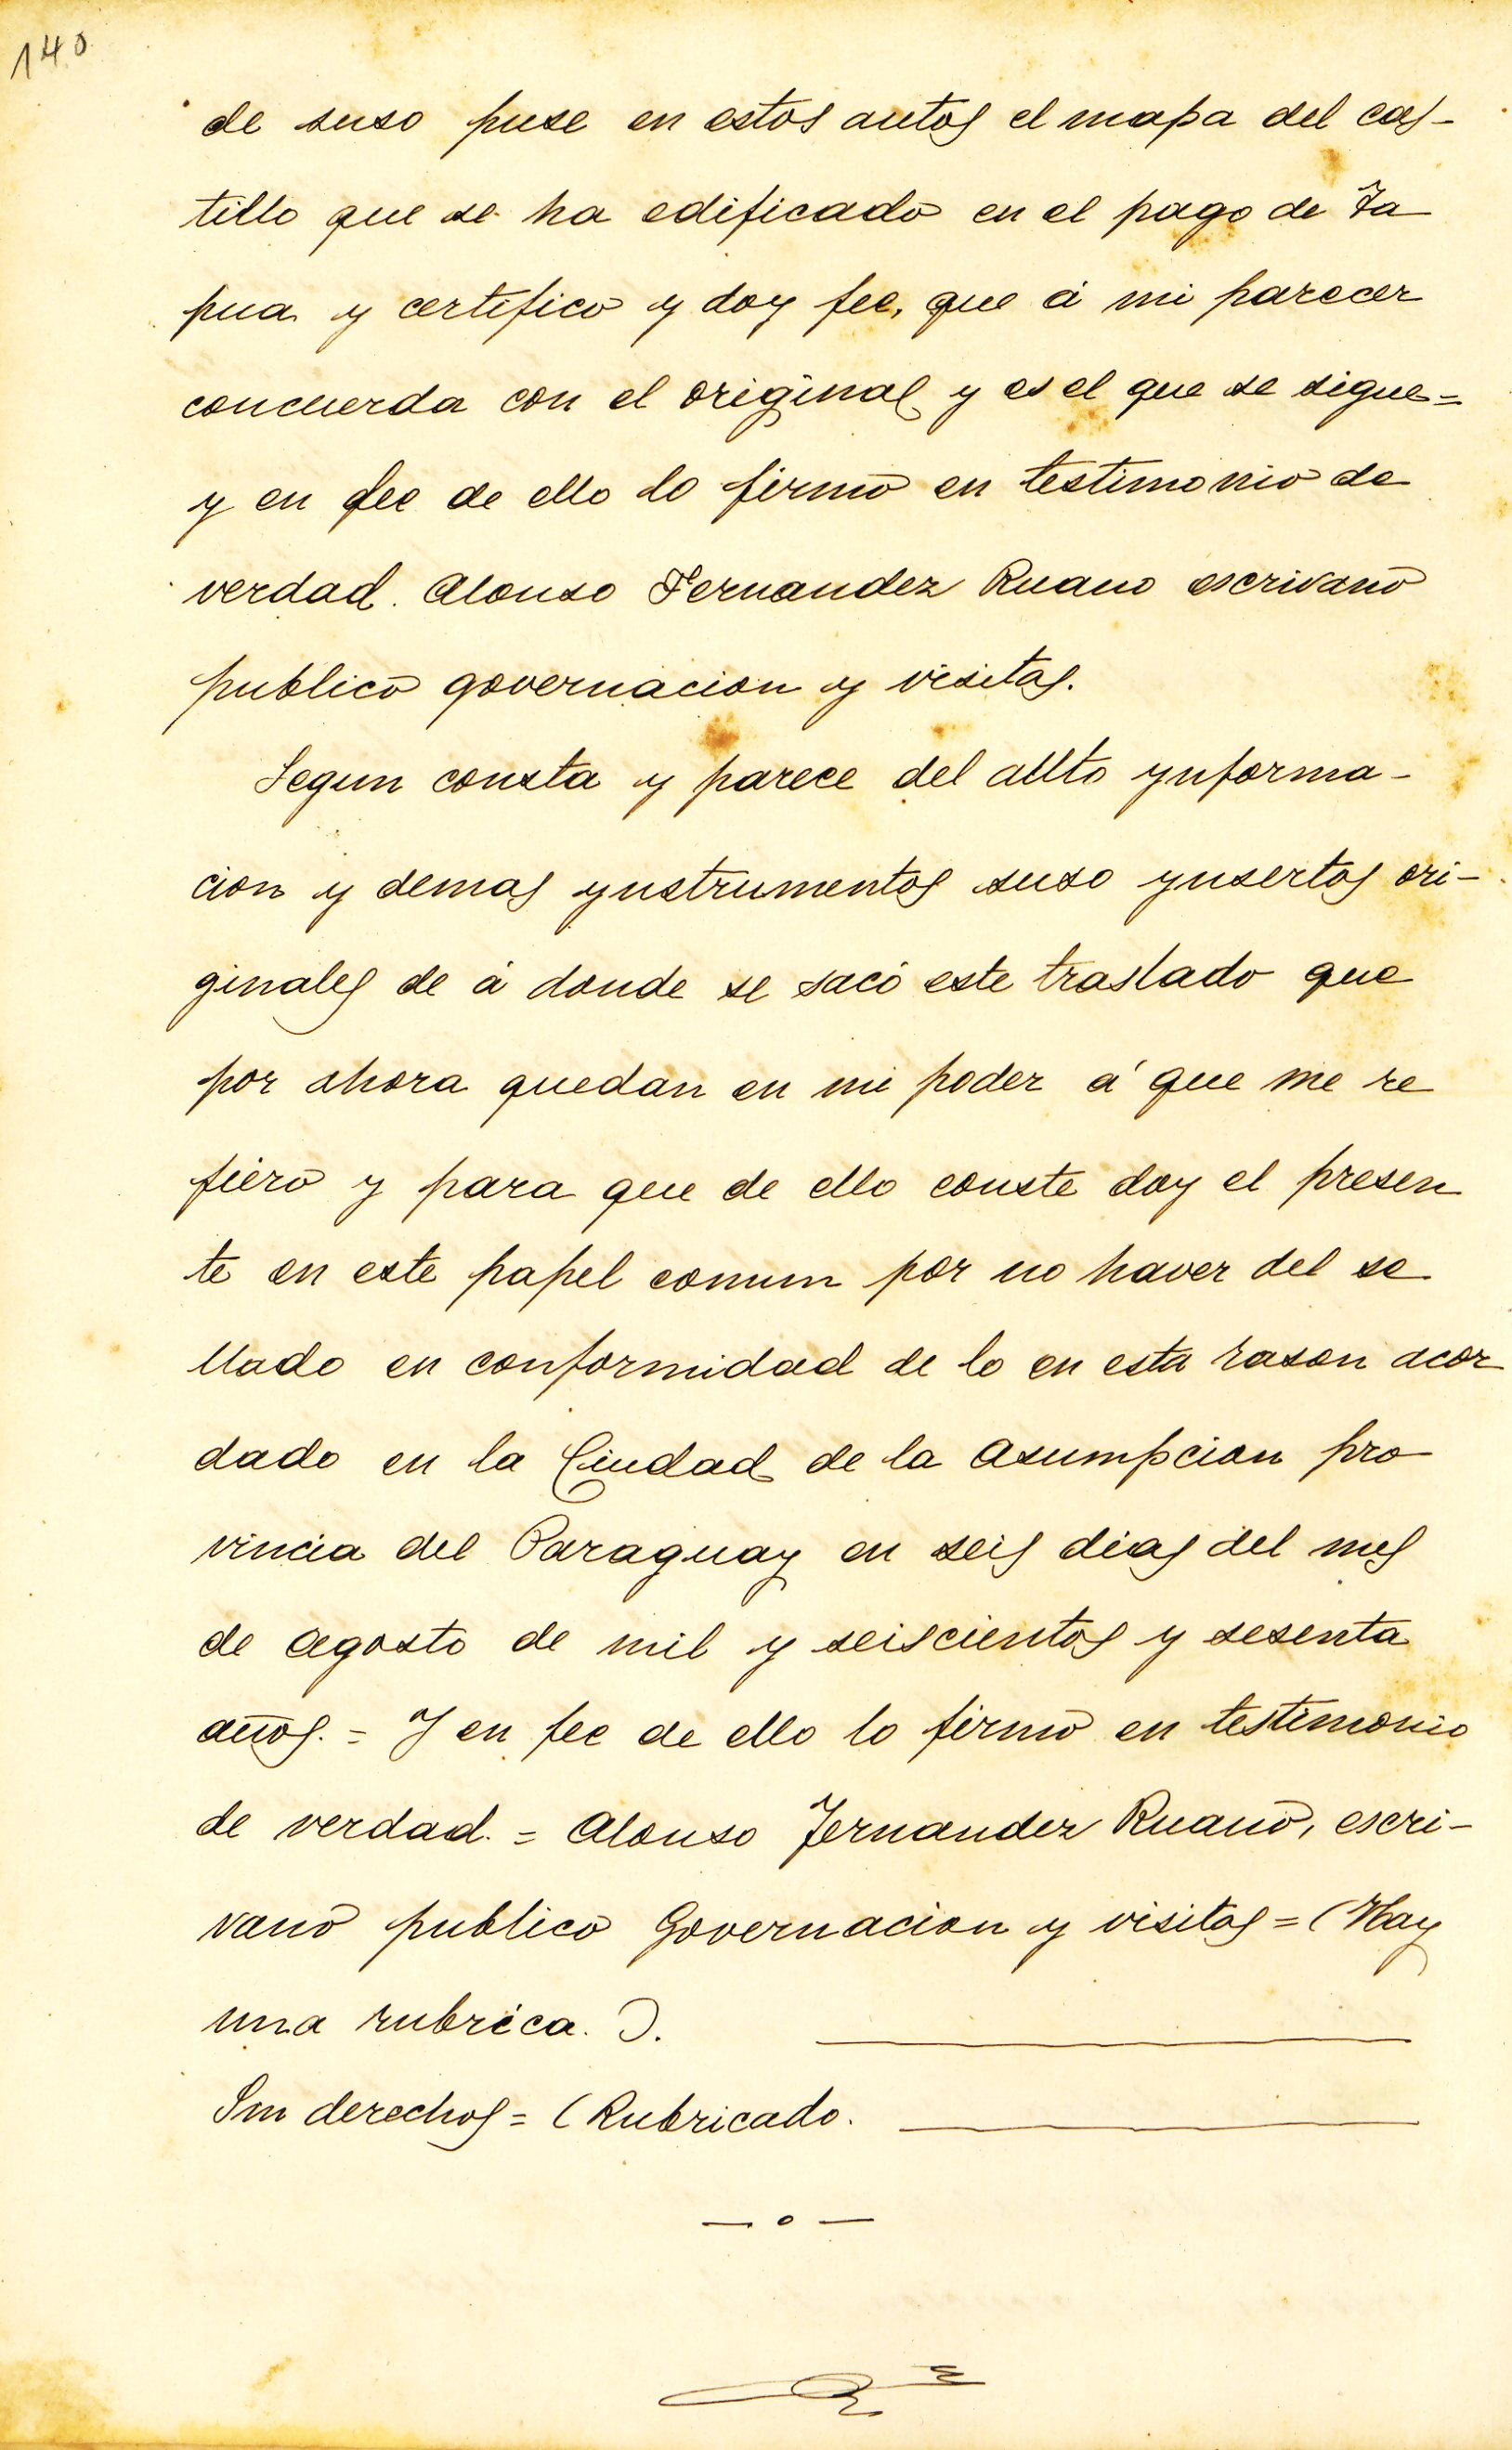 140
de suso puse en estos autos el mapa del cas-
tillo que se ha edificado en el pago de Ta
pua y certifico y doy fee, que á mi parecer
concuerda con el original y es el que se sigue=
y en fee de ello lo firmo en testimonio de
verdad. Alonso Fernandez Ruano escrivano
publico governacion y visitas.
Segun consta y parece del aUto ynforma-
cion y demas ynstrumentos suso ynsertos ori-
ginales de á donde se sacó este traslado que
por ahora quedan en mi poder á que me re
fiero y para que de ello conste doy el presen
te en este papel comun por no haver del se
llado en conformidad de lo en esta rason acor
dado en la Ciudad de la Asumpcion pro
vincia del Paraguay en seis dias del mes
de Agosto de mil y seiscientos y sesenta
años. = Y en fee de ello lo firmo en testimonio
de verdad. = Alonso Fernandez Ruano, escri-
vano publico Governacion y visitas = (Hay
una rubrica.).
Sin derechos = (Rubricado.